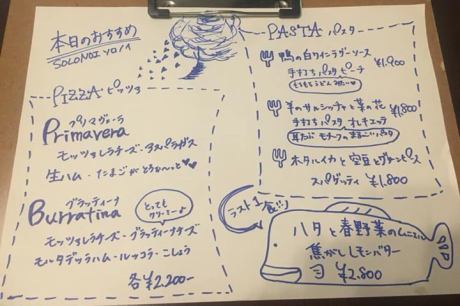 本日のおすすめ
SOLONOI
PIZZA ピッツァ
プリマヴェーラ
Primavera
モッツァレラチーズ・アスパラガス
生ハム・たまごがとろ〜っと♥♥
ブラッティーナ
Burratina
とっても
クリーミーよ
モッツァレラチーズ・ブラッティーナチーズ
モルタデッラハム・ルッコラ・こしょう
各¥2,200-
PASTA パスタ
鴨の白ワインラグーソース
手打ちパスタ ピーチ
¥1,900
もちもちうどんみたい♥
羊のサルシッチャと菜の花
手打ちパスタ オレキエッテ
¥1,800
耳たぶ
ホタルイカと空豆とグリンピース
スパゲッティ ¥1,800
ラスト1食!!
ハタと春野菜のムニエル
焦がしレモンバター
¥2,800